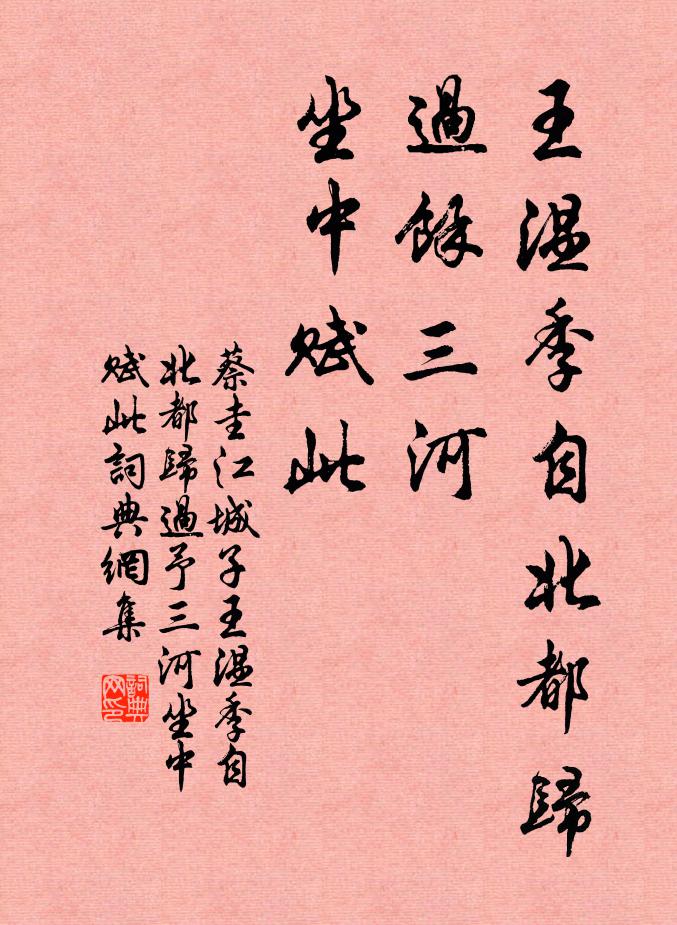 王溫季自北都歸
過餘三河
坐中賦此
蔡圭江城子王溫季自
北都歸過予三河坐中
賦此詞典網集
詞典
网印